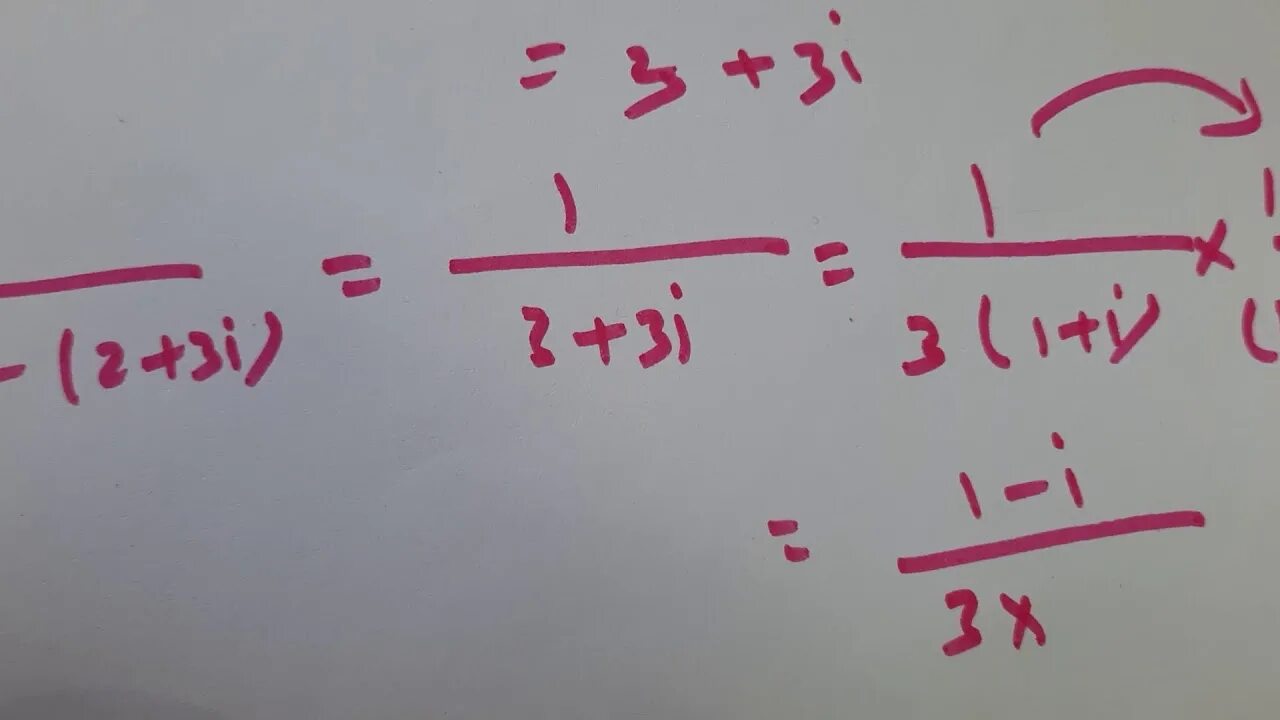 = 3 + 3i
- (2+3i) = 1/(3+3i) = 1/(3(1+i)) ×
= (1-i)/(3×